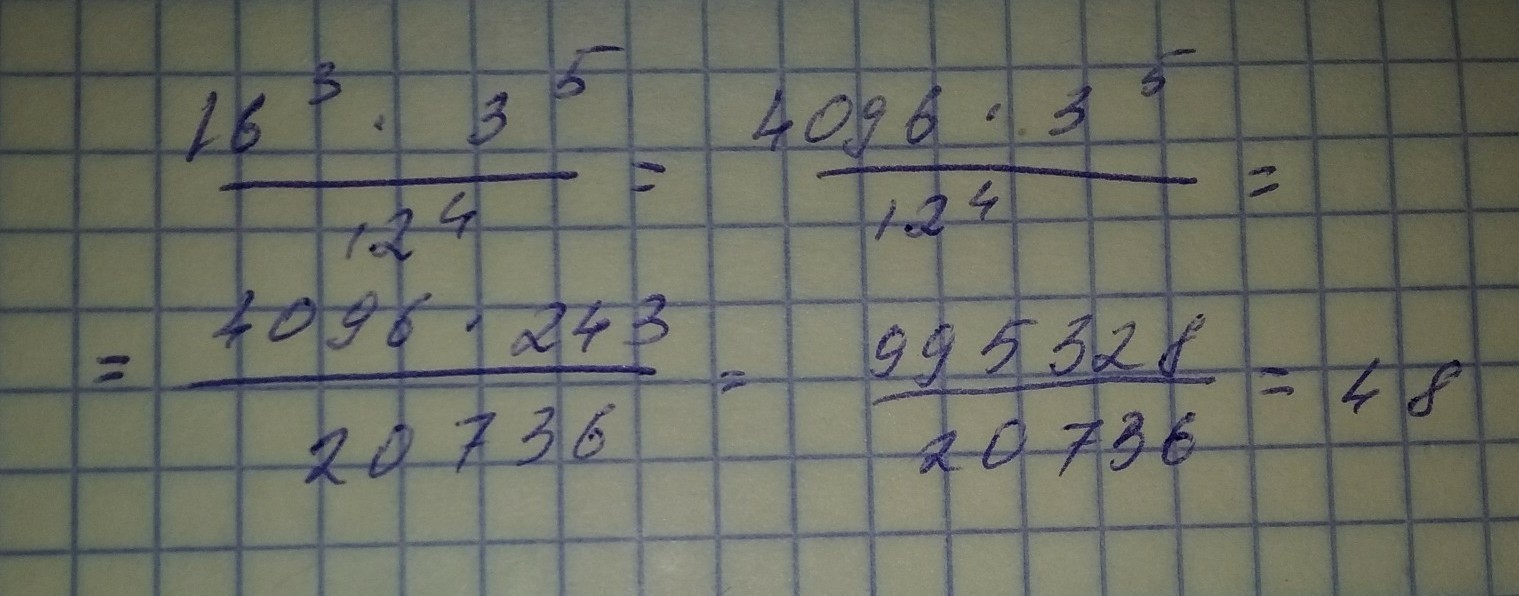 16³ · 3⁵ / 12⁴ = 4096 · 3⁵ / 12⁴ =
= 4096 · 243 / 20736 = 995328 / 20736 = 48